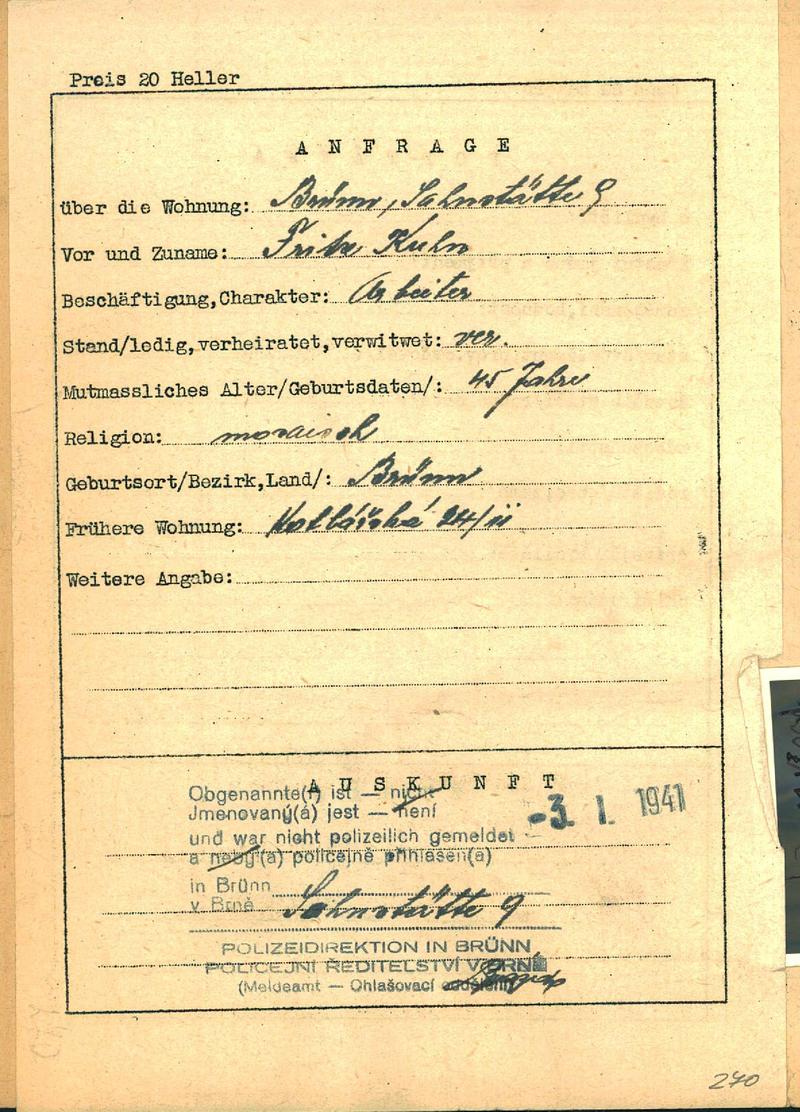 Preis 20 Heller
ANFRAGE
über die Wohnung: Brünn, Sahnstätte 9
Vor und Zuname: Fritz Kuhn
Beschäftigung,Charakter: Arbeiter
Stand/ledig,verheiratet,verwitwet: ver.
Mutmassliches Alter/Geburtsdaten/: 45 Jahre
Religion: mosaisch
Geburtsort/Bezirk,Land/: Brünn
Frühere Wohnung: 24/II
Weitere Angabe:
AUSKUNFT
Obgenannte(r) ist — nicht
Jmenovaný(á) jest — není
-3. I. 1941
und war nicht polizeilich gemeldet
a nebyl(a) policejně přihlášen(a)
in Brünn
v Brně Sahnstätte 9
POLIZEIDIREKTION IN BRÜNN
POLICEJNÍ ŘEDITELSTVÍ V BRNĚ
(Meldeamt — Ohlašovací oddělení)
270